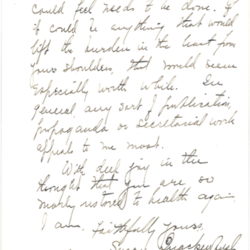 could feel needs to be done. If
it could be anything that would
lift the burden in the least from
your shoulders, that would seem
especially worth while. In
general any sort of publication,
propaganda or secretarial work
appeals to me most.
With deep joy in the
thought that you are so
nearly restored to health again
I am. faithfully yours,